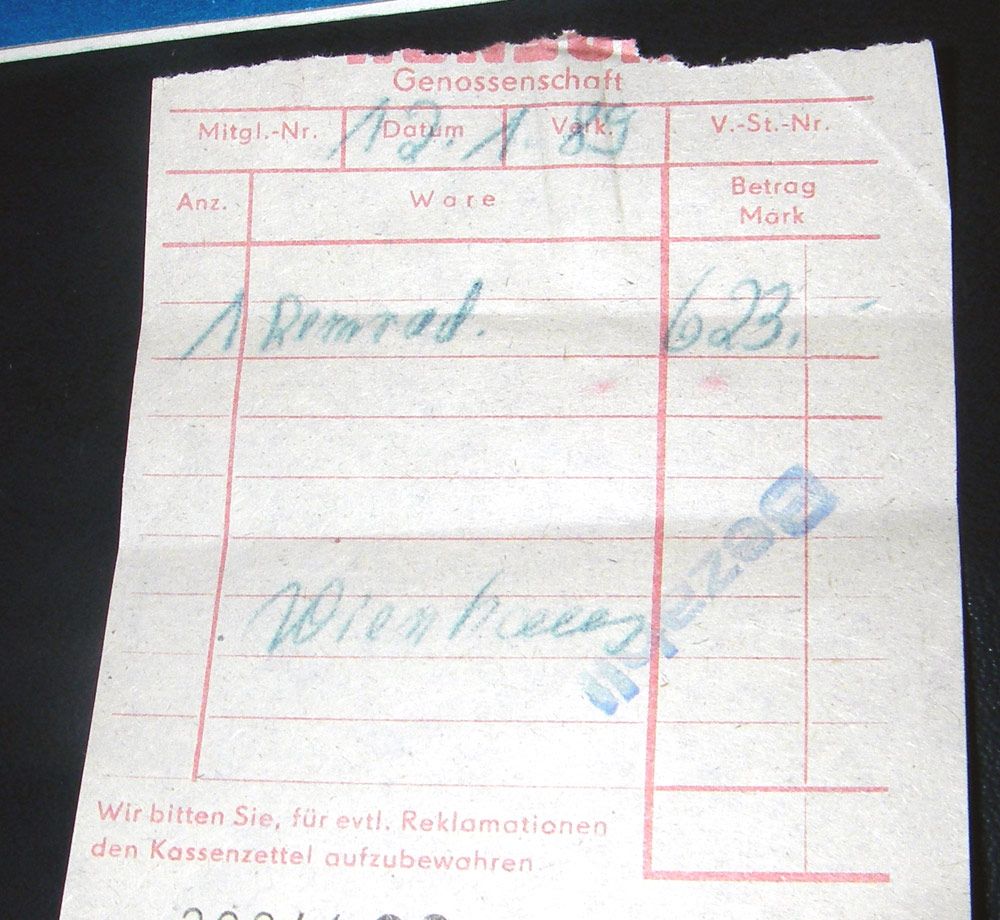 KONSUM
Genossenschaft
Mitgl.-Nr. Datum Verk. V.-St.-Nr.
12. 1. 89
Anz. Ware Betrag Mark
1 Rennrad. 623,-
Bezahlt
Wir bitten Sie, für evtl. Reklamationen
den Kassenzettel aufzubewahren